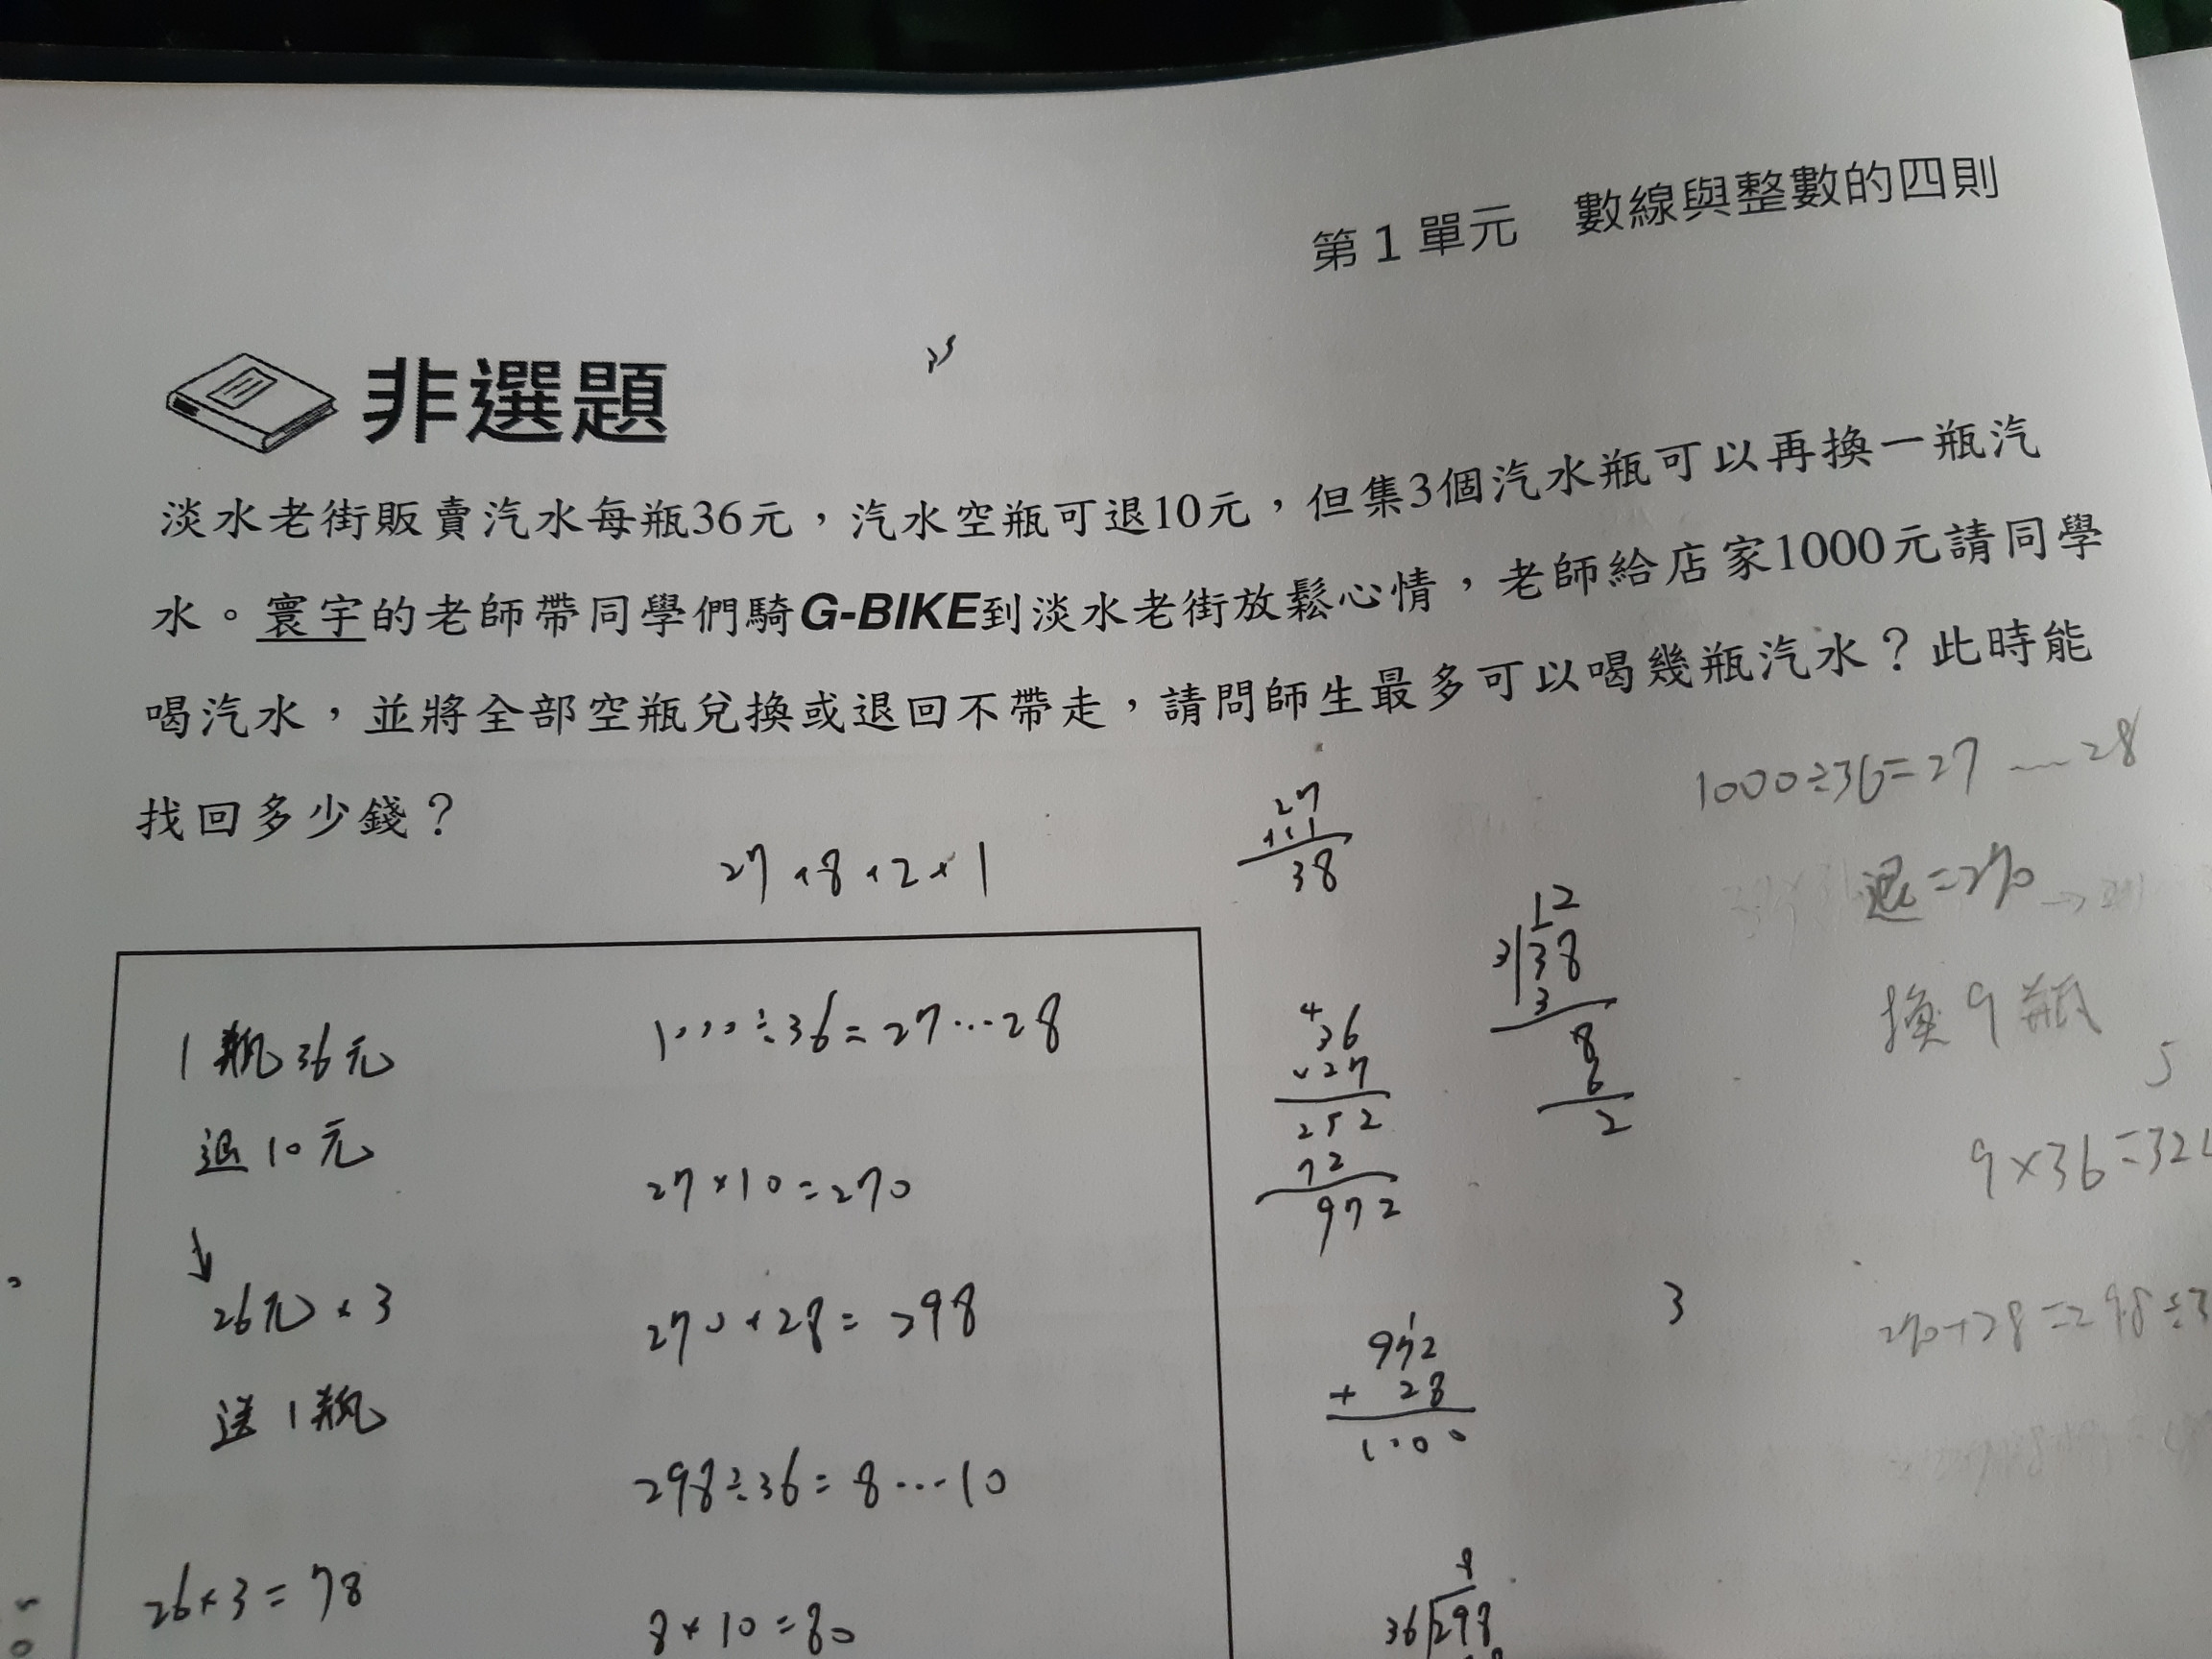 第1單元 數線與整數的四則
非選題
淡水老街販賣汽水每瓶36元，汽水空瓶可退10元，但集3個汽水瓶可以再換一瓶汽
水。寰宇的老師帶同學們騎G-BIKE到淡水老街放鬆心情，老師給店家1000元請同學
喝汽水，並將全部空瓶兌換或退回不帶走，請問師生最多可以喝幾瓶汽水？此時能
找回多少錢？
1000÷36=27……28
27+8+2+1
27
+11
38
退=270
12
3)38
3
8
6
2
換9瓶
1瓶36元
退10元
26元×3
送1瓶
26×3=78
1000÷36=27…28
27×10=270
270+28=298
298÷36=8…10
8×10=80
4
36
×27
252
72
972
5
9×36=324
3
270+28=298÷3
1
972
+ 28
1000
8
36)298